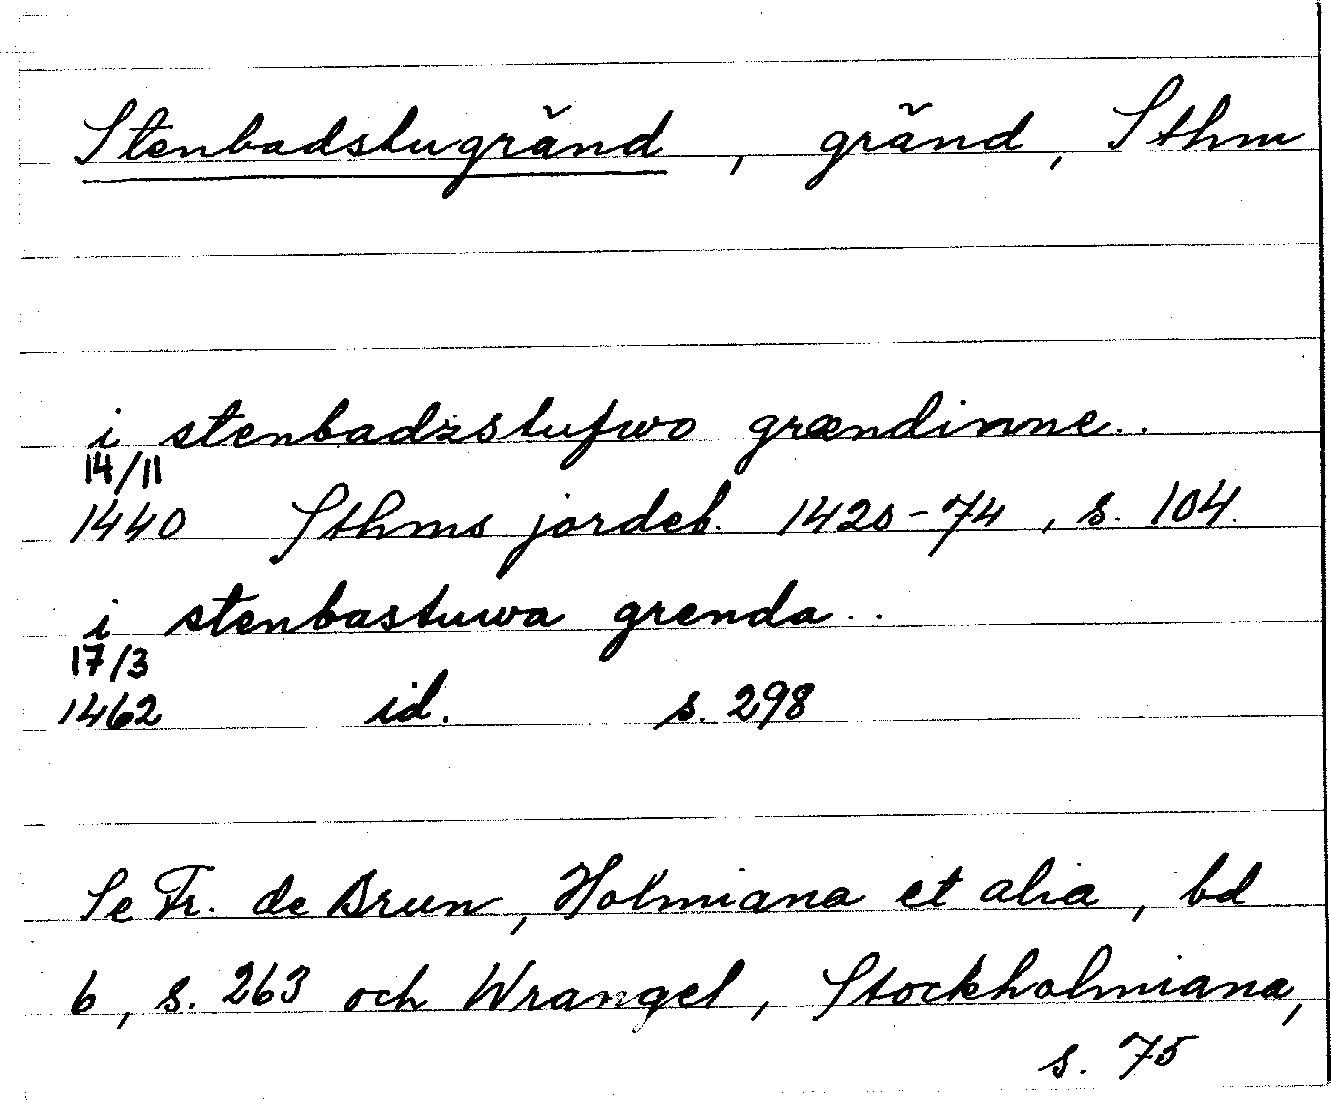 Stenbadstugränd, gränd, Sthm
i stenbadzstufwo grændinne..
14/11
1440 Sthms jordeb. 1420-74, s. 104.
i stenbastuwa grenda..
17/3
1462 id. s. 298
Se Fr. de Brun, Holmiana et alia, bd
6, s. 263 och Wrangel, Stockholmiana,
s. 75